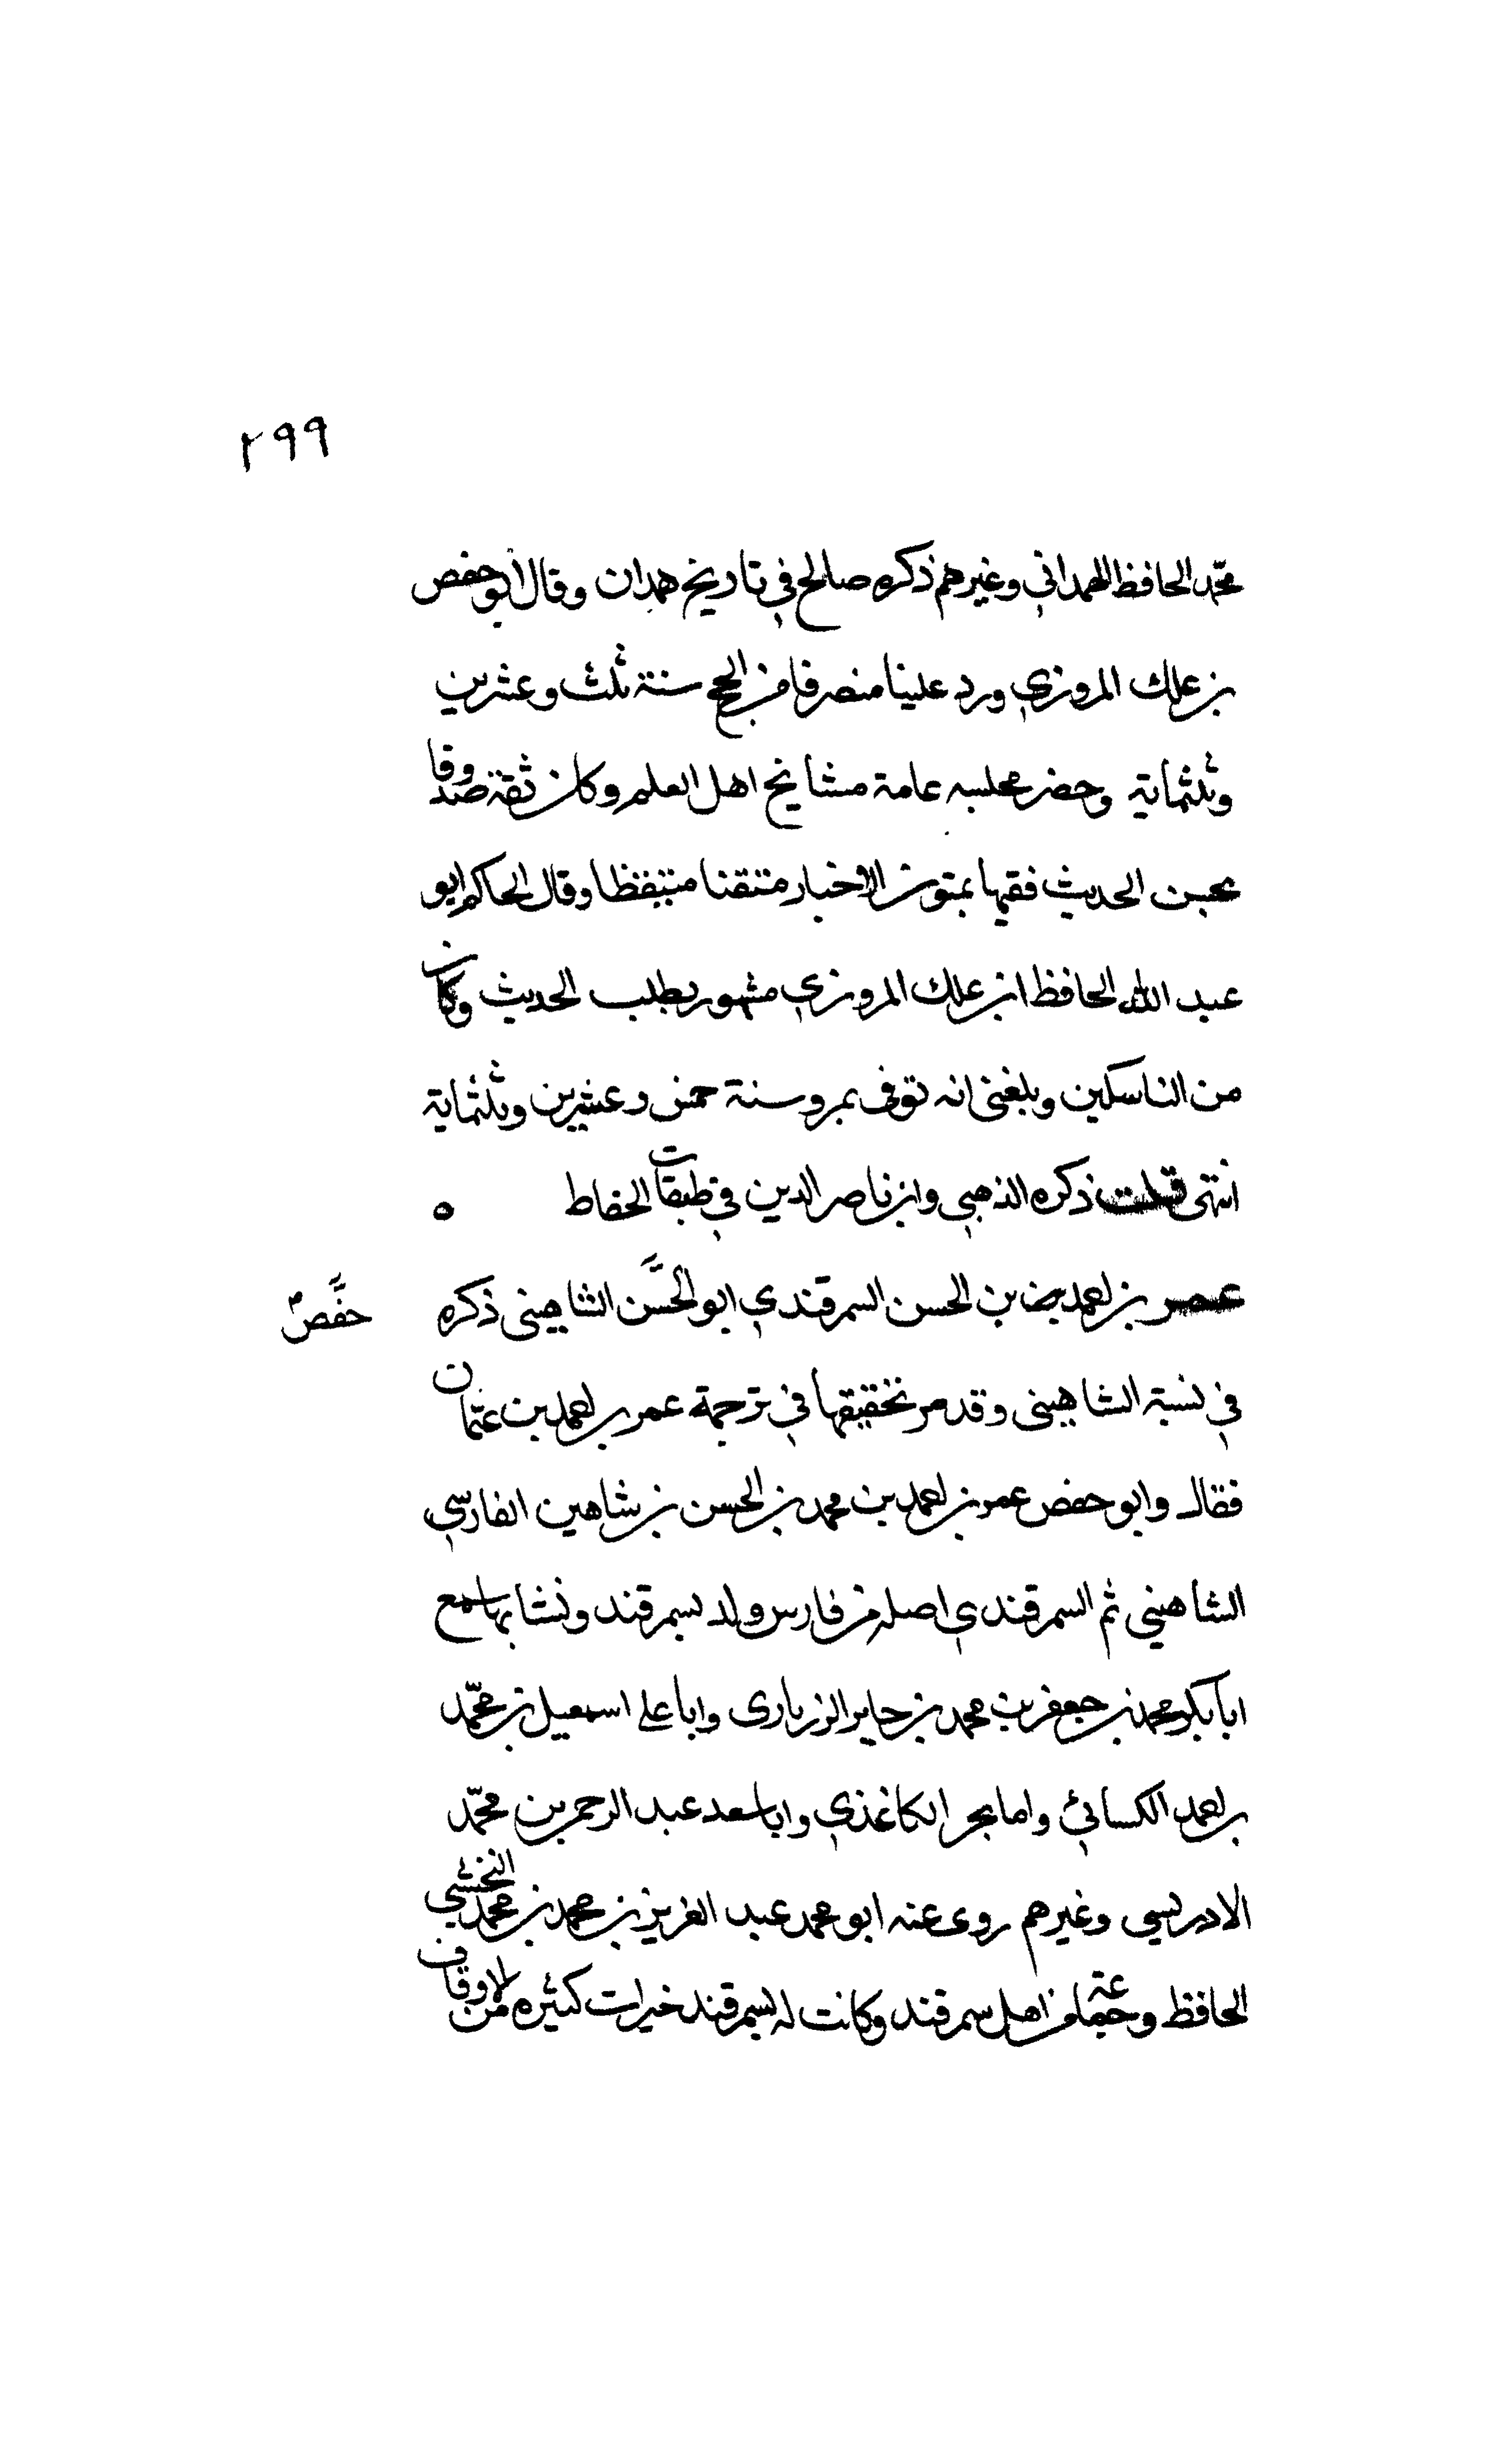 ٢٩٩
محمّد الحافظ الهمداني وغيرهم ذكره صالح في تاريخ همدان وقال ابو حفص
بن علك المروزي ورد علينا منصرفا من الحج سنة ثلث وعشرين
وثلثماية وحضر مجلسه عامة مشايخ اهل العلم وكان ثقة صدوقا
يحسن الحديث فقيها بمتون الاخبار متقنا متيقظا وقال الحاكم ابو
عبد الله الحافظ ابن علك المروزي مشهور بطلب الحديث وكان
من الناسكين وبلغني انه توفي بمرو سنة خمس وعشرين وثلثماية
انتهى قلت ذكره الذهبي وابن ناصر الدين في طبقات الحفاظ ه
عمر بن احمد بن الحسن السمرقندي ابو الحسن الشاهيني ذكره
حفص
في نسبة الشاهيني وقد مر تحقيقها في ترجمة عمر بن احمد بن عثمان
فقال وابو حفص عمر بن احمد بن محمد بن الحسن بن شاهين الفارسي
الشاهيني ثم السمرقندي اصله من فارس ولد بسمرقند ونشا بها سمع
ابا بكر محمد بن جعفر بن محمد بن جابر الرزماري وابا علي اسمعيل بن محمّد
بن احمد الكسائي الكاغذي وابا سعد عبد الرحمن بن محمّد
الادريسي وغيرهم روى عنه ابو محمد عبد العزيز بن محمد بن محمد النخشبي
الحافظ وجماعة من اهل سمرقند وكانت له بسمرقند خيرات كثيره من الاوقاف